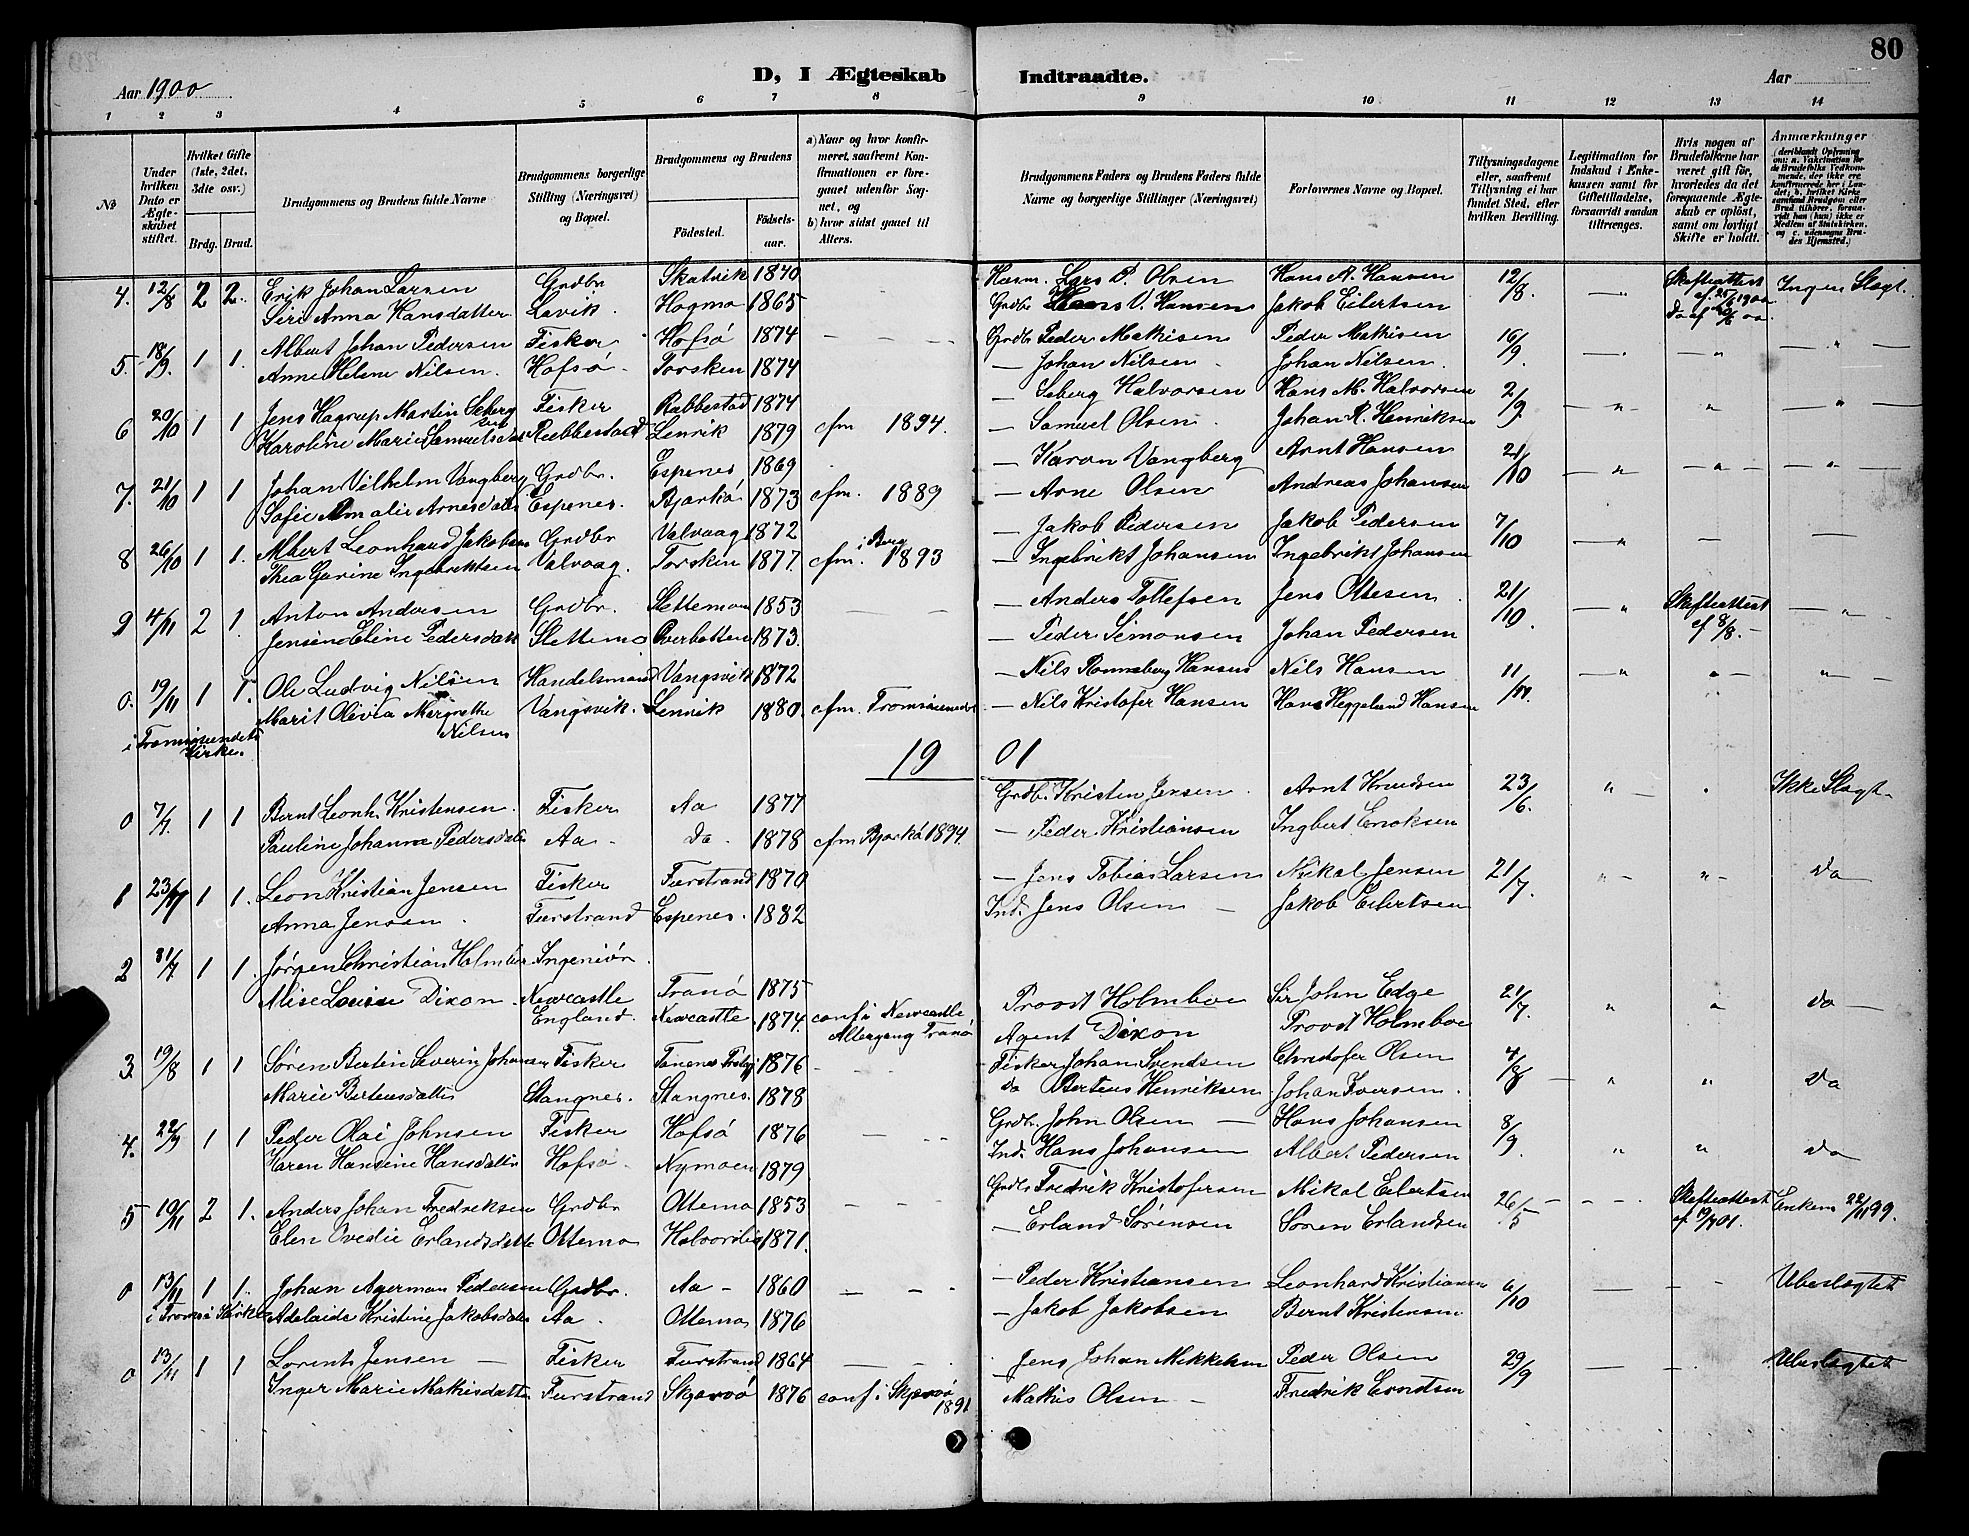 80
D, I Ægteskab Indtraadte.
Aar 1900 Aar
1 2 3 4 5 6 7 8 9 10 11 12 13 14
No
Under hvilken Dato er Ægteskabet stiftet.
Hvilket Gifte (1ste, 2det, 3die osv.)
Brdg. Brud.
Brudgommens og Brudens fulde Navne
Brudgommens borgerlige Stilling (Næringsvei) og Bopæl.
Brudgommens og Brudens
Fødested. Fødselsaar.
a) Naar og hvor konfirmeret, saafremt Konfirmationen er foregaaet udenfor Sognet, og b) hvor sidst gaaet til Alters.
Brudgommens Faders og Brudens Faders fulde Navne og borgerlige Stillinger (Næringsvei)
Forlovernes Navne og Bopæl.
Tillysningsdagene eller, saafremt Tillysning ei har fundet Sted, efter hvilken Bevilling.
Legitimation for Indskud i Enkekassen samt for Giftetilladelse, forsaavidt saadan tiltrænges.
Hvis nogen af Brudefolkene har været gift før, hvorledes da det foregaaende Ægteskab er opløst, samt om lovligt Skifte er holdt.
Anmærkninger (deriblandt Oplysning om: a. Vakcination for de Brudefolks Vedkommende, der ikke ere konfirmerede her i Landet; b. hvilket Kirkesamfund Brudgom eller Brud tilhører, forsaavidt han (hun) ikke er Medlem af Statskirken, og c. udensogns Brudes Hjemsted.)
4. 12/8 2 2. Erik Johan Larsen Grdbr Skatvik 1870 Husm. Lars P. Olsen Hans A. Hansen 12/8. Skifteattest Ingen Slægt.
Siri Anna Hansdatter Lavik. Hogmo 1865 Grdbr Hans V. Hansen Jakob Eilertsen
5. 18/9. 1 1. Albert Johan Pedersen Fisker Hofsø 1874 Grdbr Peder Mathisen Peder Mathisen 16/9.
Anne Helene Nilsen. Hofsø. Torsken 1874 — Johan Nilsen Johan Nilsen.
6 20/10 1 1 Jens Hagrup Martin Seberg Fisker Rabbestad 1874 — Seberg Halvorsen Hans M. Halvorsen 2/9.
Karoline Marie Samuelsdatter Rubbestad Lenvik 1879 cfm 1894. — Samuel Olsen Johan R. Henriksen
7. 21/10 1 1 Johan Vilhelm Vangberg Grdbr. Espenes 1869 — Karon Vangberg Arnt Hansen 21/10
Sofie Amalie Arnesdatter Espenes. Bjarkø 1873 cfm. 1889 — Arne Olsen Andreas Johansen
8 26/10 1 1. Albert Leonhard Jakobsen Grdbr Valvaag 1872 — Jakob Pedersen Jakob Pedersen 7/10
Thea Gurine Ingebriktsen Valvaag. Torsken 1877. cfm. i Berg 1893 — Ingebrikt Johansen Ingebrikt Johansen
9 4/11 2 1. Anton Andersen Grdbr. Slettemo 1853 — Anders Tollefsen Jens Ottesen 21/10. Skifteattest
Jensine Eline Pedersdatter Slettemo Overbotten 1873. — Peder Simonsen Johan Pedersen af 8/8.
0. 19/11 1 1. Ole Ludvig Nilsen Handelsmand Vangsvik 1872 — Nils Ronneberg Hansen Nils Hansen 11/11.
Marit Olivia Margrethe Nilsen Vangsvik. Lenvik 1880. cfm. Tromsøsundet — Nils Kristofer Hansen Hans Heggelund Hansen
i Tromsøsundets Kirke.
19 01
0 7/7. 1 1 Bernt Leonh. Kristensen. Fisker Aa 1877 Grdb. Kristen Jensen. Arnt Knudsen 23/6. Ikke Slægt.
Pauline Johanna Pedersdatter Aa. do. 1878 cfm Bjarkø 1894. — Peder Kristiansen Ingbert Eriksen
1 23/7 1 1. Leon Kristian Jensen Fisker Furstrand 1870 — Jens Tobias Larsen Mikal Jensen 21/7. do
Anna Jensen. Furstrand Espenes. 1882 Ind. Jens Olsen — Jakob Eilertsen
2 31/7 1 1. Jørgen Christian Holmboe Ingeniør Tranø 1875 Provst Holmboe Sir John Edge 21/7. do
Alise Louise Dixon. Newcastle England. Newcastle 1874. conf i Newcastle Altergang Tranø Agent Dixon Provst Holmboe
3. 19/8 1 1 Søren Bertin Severin Johansen Fisker 1876 Fisker Johan Svendsen Christofer Olsen 4/8 do
Marie Bertensdatter Stangnes. Stangnes. 1878 do Bertens Henriksen Johan Iversen.
4. 22/9 1 1 Peder Olai Johnsen Fisker Hofsø 1876 Grdbr. John Olsen — Hans Johansen 8/9. do
Karen Hansine Hansdatter Hofsø. Nymoen 1879 Ind. Hans Johansen Albert Pedersen
5 19/11 2 1. Anders Johan Fredriksen Grdbr Ottemo 1853 Grdbr Fredrik Kristofersen Mikal Eilertsen 26/5 Skifteattest Enkem. 22/11 99.
Elen Ovedie Erlandsdatter Ottemo 1871. — Erland Sørensen Søren Erlandsen
0 13/11 1 1. Johan Agerman Pedersen Grdbr. Aa — 1860 — Peder Kristiansen Leonhard Kristiansen 6/10 Ubeslægtet
i Tromsø Kirke Adelaide Kristine Jakobsdatter Aa. Ottemo 1876 — Jakob Jakobsen Bernt Kristensen
0 13/11 1 1 Lorents Jensen — Fisker Furstrand 1864 Jens Johan Mikkelsen Peder Olsen 29/9 Ubeslægtet
Inger Marie Mathisdatter Furstrand Skjervø 1876 conf i Skjervø 1891 Mathis Olsen — Fredrik Erndtsen